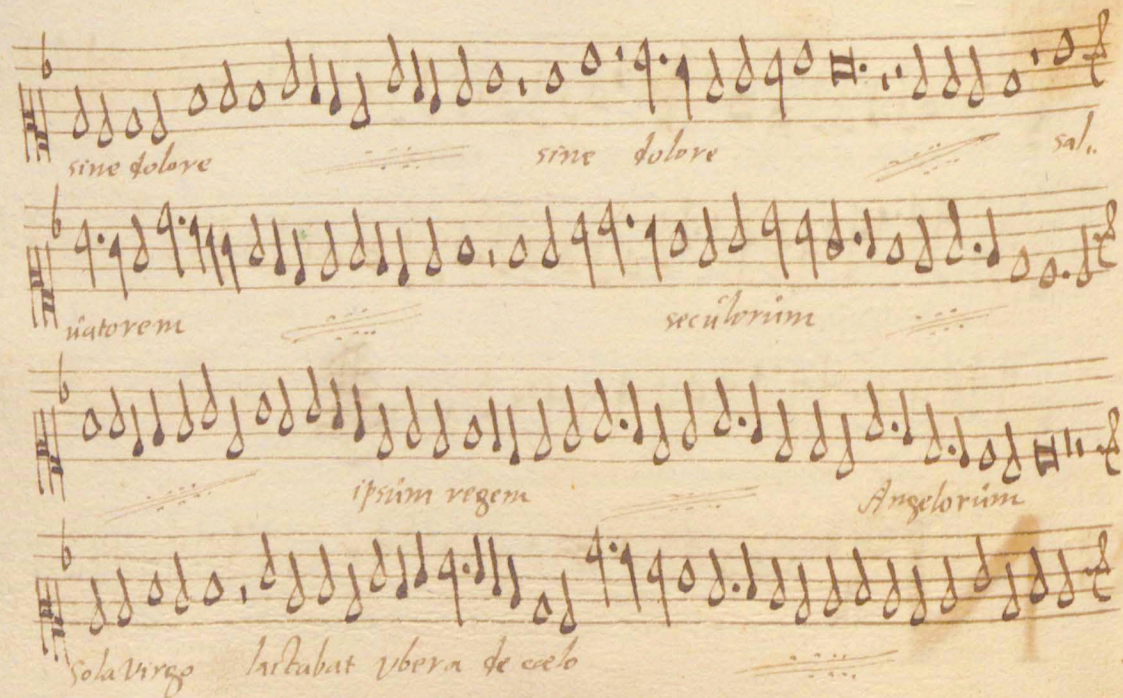 sine dolore sine dolore sal„
uatorem seculorum
ipsum regem Angelorum
sola virgo lactabat vbera de cælo